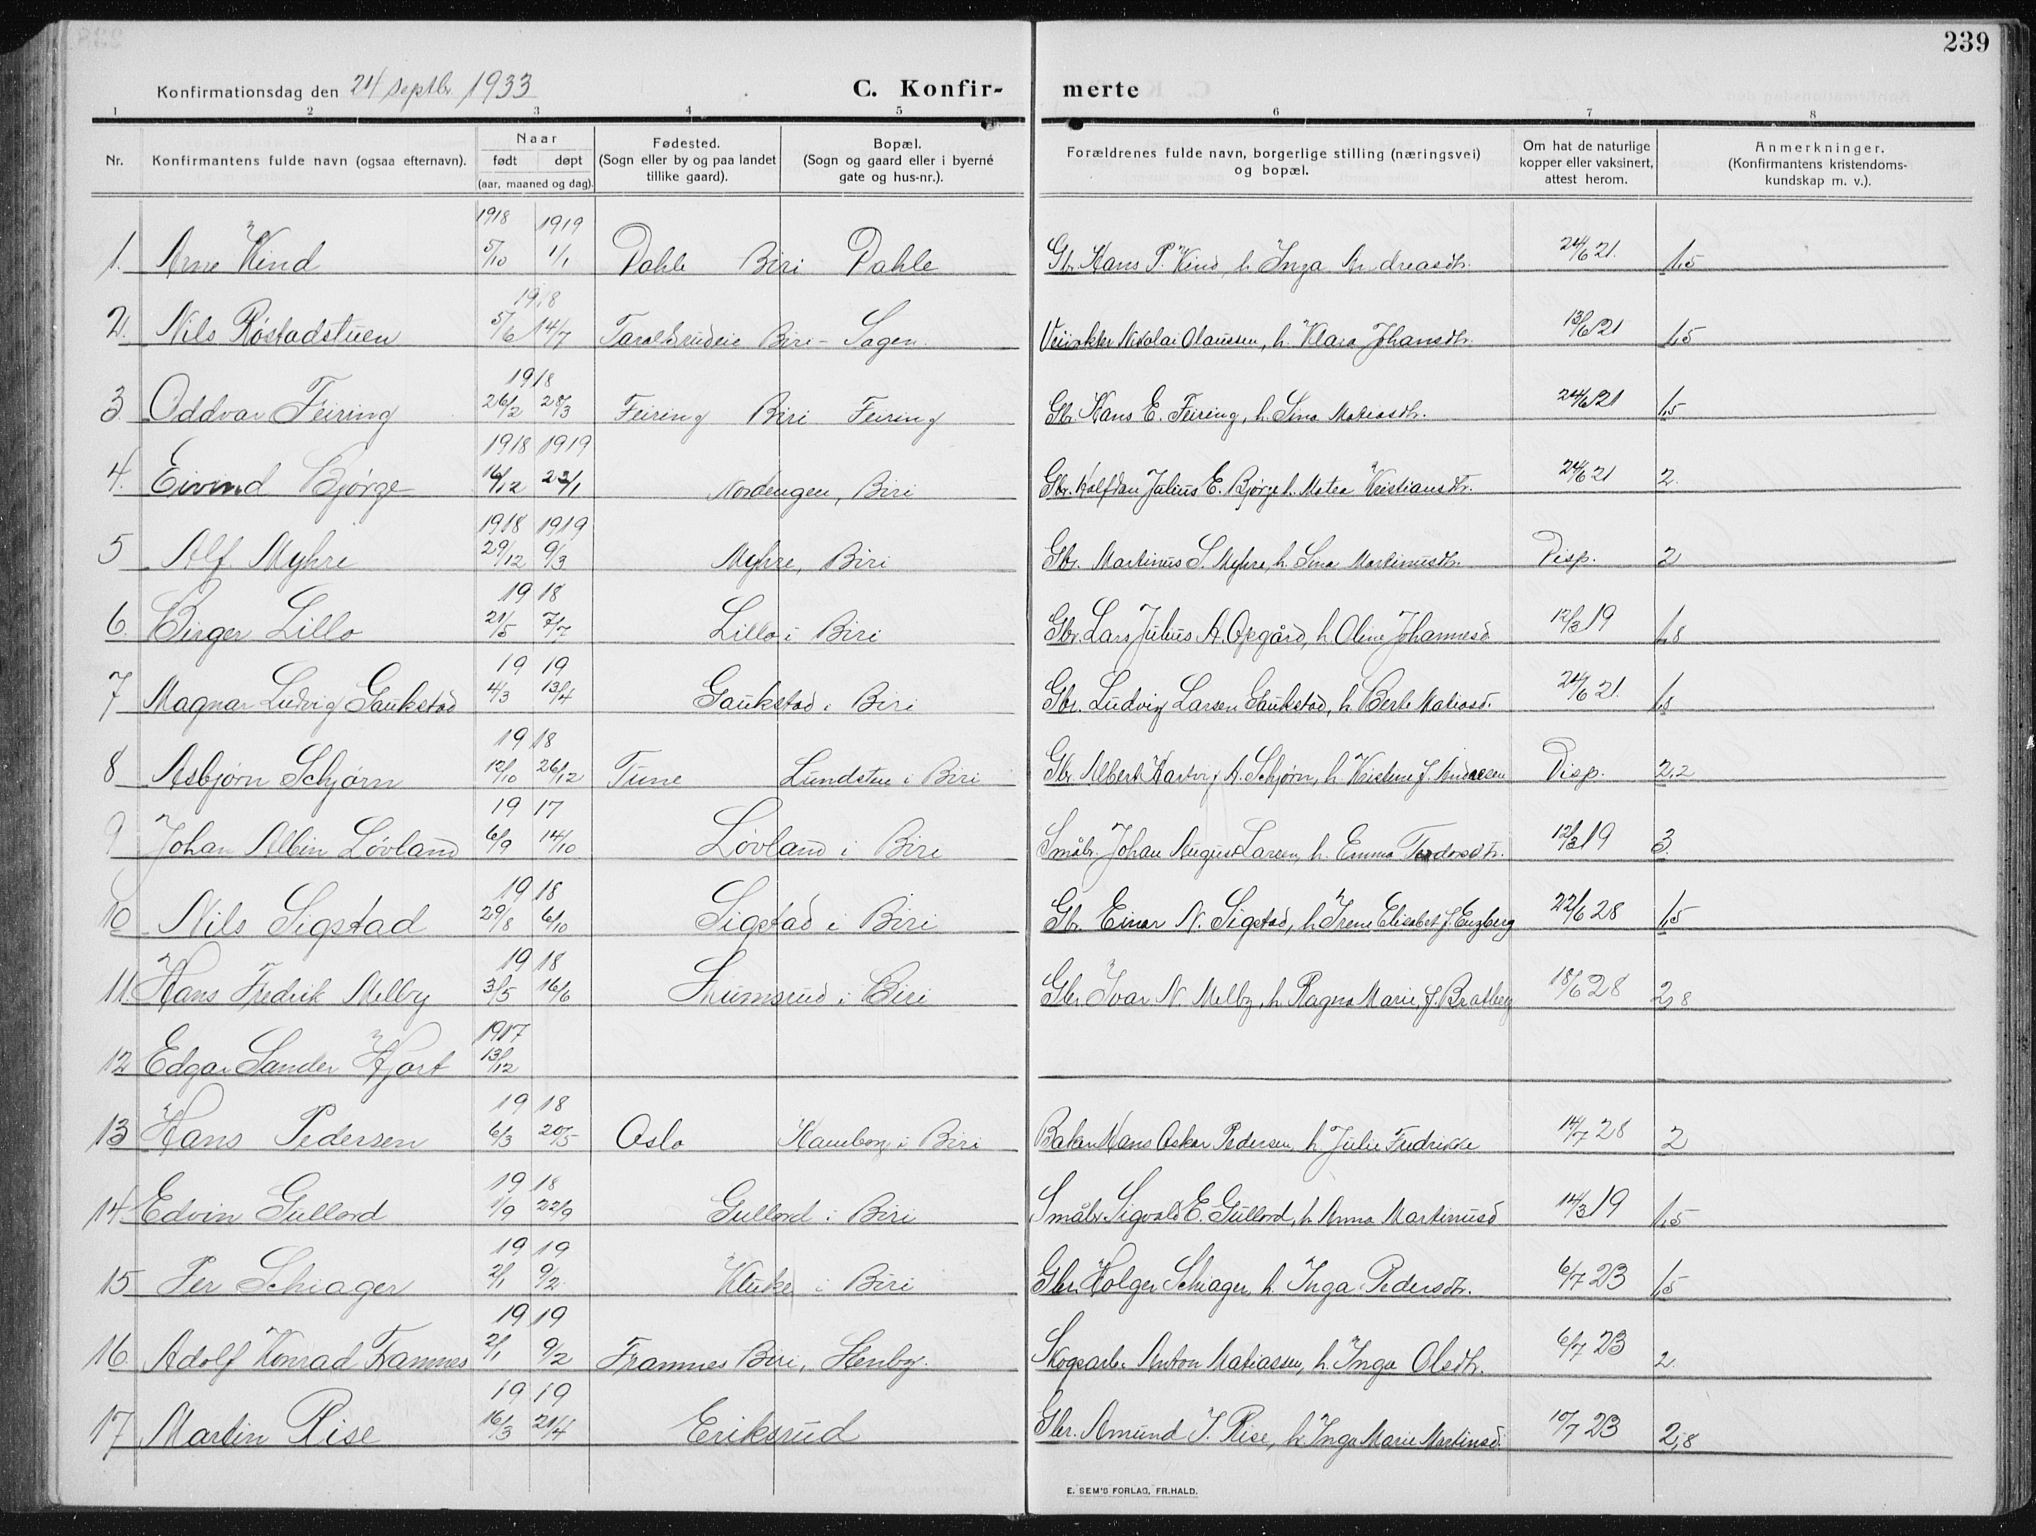 239
Konfirmationsdag den 24 septbr 1933
C. Konfir- merte
1 2 3 4 5 6 7 8
Nr. Konfirmantens fulde navn (ogsaa efternavn). Naar født døpt (aar, maaned og dag). Fødested. (Sogn eller by og paa landet tillike gaard). Bopæl. (Sogn og gaard eller i byerne gate og hus-nr.). Forældrenes fulde navn, borgerlige stilling (næringsvei) og bopæl. Om hat de naturlige kopper eller vaksinert, attest herom. Anmerkninger. (Konfirmantens kristendoms- kundskap m. v.).
1918 1919
1. Arne Kind 5/10 1/1 Dahle Biri Dahle Gbr. Hans P. Kind, h. Inga Andreasdtr. 24/6 21. 1,5
1918
2. Nils Røstadstuen 5/6 14/7 Biri - Sagen Nikolai Olaussen, h. Klara Johansdtr. 13/6 21 1,5
1918
3. Oddvar Feiring 26/2 28/3 Feiring Biri Feiring Gbr. Hans E. Feiring, h. Lina Matiasdtr. 24/6 21 1,5
1918 1919
4. Eivind Bjørge 16/12 23/1 Nordengen, Biri Gbr. Halfdan Julius E. Bjørge h. Matea Kristiansdtr. 24/6 21 2.
1918 1919
5 Alf Myhre 29/12 9/3 Myhre, Biri Gbr. Martinus S. Myhre, h. Lina Martinusdtr. Disp. 2
1918
6. Birger Lillo 21/5 7/7 Lillo i Biri Gbr. Lars Julius A. Opgård, h. Oline Johannesd. 12/3 19 1,8
1919
7 Magnar Ludvig Gaukstad 4/3 13/4 Gaukstad i Biri Gbr. Ludvig Larsen Gaukstad, h. Berte Matiasd. 24/6 21.
1918
8 Asbjørn Schjørn 12/10 26/12 Tune Lundstu i Biri Gbr. Albert A. Schjørn, h. Kristine f. Andresen Disp. 2,2
1917
9 Johan Albin Løvland 6/9 14/10 Løvland i Biri Småbr. Johan August Larsen, h. Emma Teodorsdtr. 12/3 19 3.
1918
10 Nils Sigstad 29/8 6/10 Sigstad i Biri Gbr. Einar N. Sigstad, h. Irene Elisabet f. Enzberg 22/6 28 1,5
1918
11. Hans Fredrik Melby 3/5 16/6 Skumsrud i Biri Gbr. Ivar N. Melby, h. Ragna Marie, f. Bratberg 18/6 28 2,8
1917
12 Edgar Sander Hjort 13/12
1918
13 Hans Pedersen 6/3 20/5 Oslo i Biri Baker Hans Oskar Pedersen, h. Julie Fredrikke 14/7 28 2
1918
14 Edvin Gullord 1/9 22/9 Gullord i Biri Småbr. Sigvald E. Gullord, h. Anna Martinusd 14/3 19 1,5
1919
15 Per Schiager 2/1 9/2 Kluke i Biri Gbr. Holger Schiager, h. Inga Pedersdtr. 6/7 23 1,5
1919
16 Adolf Konrad Framnes 2/1 9/2 Framnes Biri, Stenby. Skogsarb. Anton Matiassen, h. Inga Olsdtr. 6/7 23 2.
1919
17 Martin Rise 16/3 21/4 Eriksrud Gbr. Amund J. Rise, h. Inga Marie Martinsd. 10/7 23 2,8
E. SEM'S FORLAG, FR.HALD.